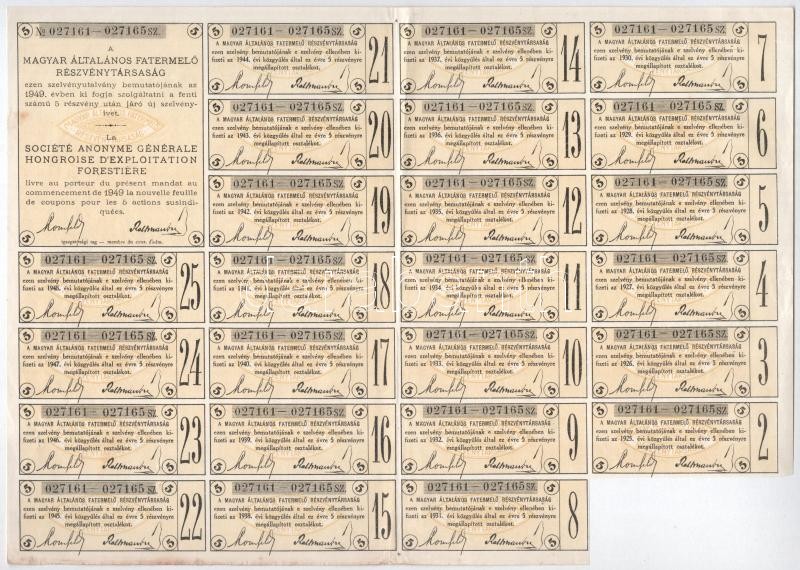 № 027161—027165 SZ.
A
MAGYAR ÁLTALÁNOS FATERMELŐ
RÉSZVÉNYTÁRSASÁG
ezen szelvényutalvány bemutatójának az
1949. évben ki fogja szolgáltatni a fenti
számú 5 részvény után járó új szelvény-
ívet.
La
SOCIÉTÉ ANONYME GÉNÉRALE
HONGROISE D'EXPLOITATION
FORESTIÈRE
livre au porteur du présent mandat au
commencement de 1949 la nouvelle feuille
de coupons pour les 5 actions susindi-
quées.
igazgatósági tag — membre du cons. d'adm.
027161—027165 SZ.
A MAGYAR ÁLTALÁNOS FATERMELŐ RÉSZVÉNYTÁRSASÁG
ezen szelvény bemutatójának e szelvény ellenében ki-
fizeti az 1948. évi közgyűlés által ez évre 5 részvényre
megállapított osztalékot.
25
027161—027165 SZ.
A MAGYAR ÁLTALÁNOS FATERMELŐ RÉSZVÉNYTÁRSASÁG
ezen szelvény bemutatójának e szelvény ellenében ki-
fizeti az 1947. évi közgyűlés által ez évre 5 részvényre
megállapított osztalékot.
24
027161—027165 SZ.
A MAGYAR ÁLTALÁNOS FATERMELŐ RÉSZVÉNYTÁRSASÁG
ezen szelvény bemutatójának e szelvény ellenében ki-
fizeti az 1946. évi közgyűlés által ez évre 5 részvényre
megállapított osztalékot.
23
027161—027165 SZ.
A MAGYAR ÁLTALÁNOS FATERMELŐ RÉSZVÉNYTÁRSASÁG
ezen szelvény bemutatójának e szelvény ellenében ki-
fizeti az 1945. évi közgyűlés által ez évre 5 részvényre
megállapított osztalékot.
22
027161—027165 SZ.
A MAGYAR ÁLTALÁNOS FATERMELŐ RÉSZVÉNYTÁRSASÁG
ezen szelvény bemutatójának e szelvény ellenében ki-
fizeti az 1944. évi közgyűlés által ez évre 5 részvényre
megállapított osztalékot.
21
027161—027165 SZ.
A MAGYAR ÁLTALÁNOS FATERMELŐ RÉSZVÉNYTÁRSASÁG
ezen szelvény bemutatójának e szelvény ellenében ki-
fizeti az 1943. évi közgyűlés által ez évre 5 részvényre
megállapított osztalékot.
20
027161—027165 SZ.
A MAGYAR ÁLTALÁNOS FATERMELŐ RÉSZVÉNYTÁRSASÁG
ezen szelvény bemutatójának e szelvény ellenében ki-
fizeti az 1942. évi közgyűlés által ez évre 5 részvényre
megállapított osztalékot.
19
027161—027165 SZ.
A MAGYAR ÁLTALÁNOS FATERMELŐ RÉSZVÉNYTÁRSASÁG
ezen szelvény bemutatójának e szelvény ellenében ki-
fizeti az 1941. évi közgyűlés által ez évre 5 részvényre
megállapított osztalékot.
18
027161—027165 SZ.
A MAGYAR ÁLTALÁNOS FATERMELŐ RÉSZVÉNYTÁRSASÁG
ezen szelvény bemutatójának e szelvény ellenében ki-
fizeti az 1940. évi közgyűlés által ez évre 5 részvényre
megállapított osztalékot.
17
027161—027165 SZ.
A MAGYAR ÁLTALÁNOS FATERMELŐ RÉSZVÉNYTÁRSASÁG
ezen szelvény bemutatójának e szelvény ellenében ki-
fizeti az 1939. évi közgyűlés által ez évre 5 részvényre
megállapított osztalékot.
16
027161—027165 SZ.
A MAGYAR ÁLTALÁNOS FATERMELŐ RÉSZVÉNYTÁRSASÁG
ezen szelvény bemutatójának e szelvény ellenében ki-
fizeti az 1938. évi közgyűlés által ez évre 5 részvényre
megállapított osztalékot.
15
027161—027165 SZ.
A MAGYAR ÁLTALÁNOS FATERMELŐ RÉSZVÉNYTÁRSASÁG
ezen szelvény bemutatójának e szelvény ellenében ki-
fizeti az 1937. évi közgyűlés által ez évre 5 részvényre
megállapított osztalékot.
14
027161—027165 SZ.
A MAGYAR ÁLTALÁNOS FATERMELŐ RÉSZVÉNYTÁRSASÁG
ezen szelvény bemutatójának e szelvény ellenében ki-
fizeti az 1936. évi közgyűlés által ez évre 5 részvényre
megállapított osztalékot.
13
027161—027165 SZ.
A MAGYAR ÁLTALÁNOS FATERMELŐ RÉSZVÉNYTÁRSASÁG
ezen szelvény bemutatójának e szelvény ellenében ki-
fizeti az 1935. évi közgyűlés által ez évre 5 részvényre
megállapított osztalékot.
12
027161—027165 SZ.
A MAGYAR ÁLTALÁNOS FATERMELŐ RÉSZVÉNYTÁRSASÁG
ezen szelvény bemutatójának e szelvény ellenében ki-
fizeti az 1934. évi közgyűlés által ez évre 5 részvényre
megállapított osztalékot.
11
027161—027165 SZ.
A MAGYAR ÁLTALÁNOS FATERMELŐ RÉSZVÉNYTÁRSASÁG
ezen szelvény bemutatójának e szelvény ellenében ki-
fizeti az 1933. évi közgyűlés által ez évre 5 részvényre
megállapított osztalékot.
10
027161—027165 SZ.
A MAGYAR ÁLTALÁNOS FATERMELŐ RÉSZVÉNYTÁRSASÁG
ezen szelvény bemutatójának e szelvény ellenében ki-
fizeti az 1932. évi közgyűlés által ez évre 5 részvényre
megállapított osztalékot.
9
027161—027165 SZ.
A MAGYAR ÁLTALÁNOS FATERMELŐ RÉSZVÉNYTÁRSASÁG
ezen szelvény bemutatójának e szelvény ellenében ki-
fizeti az 1931. évi közgyűlés által ez évre 5 részvényre
megállapított osztalékot.
8
027161—027165 SZ.
A MAGYAR ÁLTALÁNOS FATERMELŐ RÉSZVÉNYTÁRSASÁG
ezen szelvény bemutatójának e szelvény ellenében ki-
fizeti az 1930. évi közgyűlés által ez évre 5 részvényre
megállapított osztalékot.
7
027161—027165 SZ.
A MAGYAR ÁLTALÁNOS FATERMELŐ RÉSZVÉNYTÁRSASÁG
ezen szelvény bemutatójának e szelvény ellenében ki-
fizeti az 1929. évi közgyűlés által ez évre 5 részvényre
megállapított osztalékot.
6
027161—027165 SZ.
A MAGYAR ÁLTALÁNOS FATERMELŐ RÉSZVÉNYTÁRSASÁG
ezen szelvény bemutatójának e szelvény ellenében ki-
fizeti az 1928. évi közgyűlés által ez évre 5 részvényre
megállapított osztalékot.
5
027161—027165 SZ.
A MAGYAR ÁLTALÁNOS FATERMELŐ RÉSZVÉNYTÁRSASÁG
ezen szelvény bemutatójának e szelvény ellenében ki-
fizeti az 1927. évi közgyűlés által ez évre 5 részvényre
megállapított osztalékot.
4
027161—027165 SZ.
A MAGYAR ÁLTALÁNOS FATERMELŐ RÉSZVÉNYTÁRSASÁG
ezen szelvény bemutatójának e szelvény ellenében ki-
fizeti az 1926. évi közgyűlés által ez évre 5 részvényre
megállapított osztalékot.
3
027161—027165 SZ.
A MAGYAR ÁLTALÁNOS FATERMELŐ RÉSZVÉNYTÁRSASÁG
ezen szelvény bemutatójának e szelvény ellenében ki-
fizeti az 1925. évi közgyűlés által ez évre 5 részvényre
megállapított osztalékot.
2